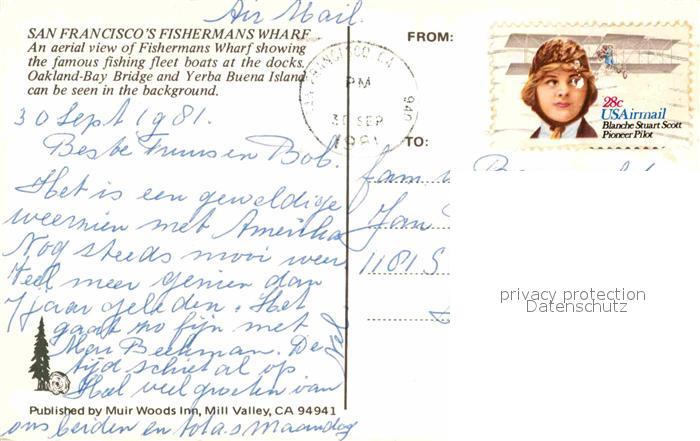 Air Mail.
SAN FRANCISCO'S FISHERMANS WHARF
An aerial view of Fishermans Wharf showing
the famous fishing fleet boats at the docks.
Oakland-Bay Bridge and Yerba Buena Island
can be seen in the background.
30 Sept 1981.
Beste Truus en Bob.
Het is een geweldige
weerzien met Amerika
Nog steeds mooi weer
Veel meer genieten dan
7 jaar geleden. Het
gaat zo fijn met
Beekman. De
tijd schiet al op
Heel veel groeten van
ons beiden en tot a.s maandag
Published by Muir Woods Inn, Mill Valley, CA 94941
FROM:
SAN FRANCISCO CA
PM
30 SEP
1981
940
28c
USAirmail
Blanche Stuart Scott
Pioneer Pilot
TO:
fam
Jan
1181 S
privacy protection
Datenschutz